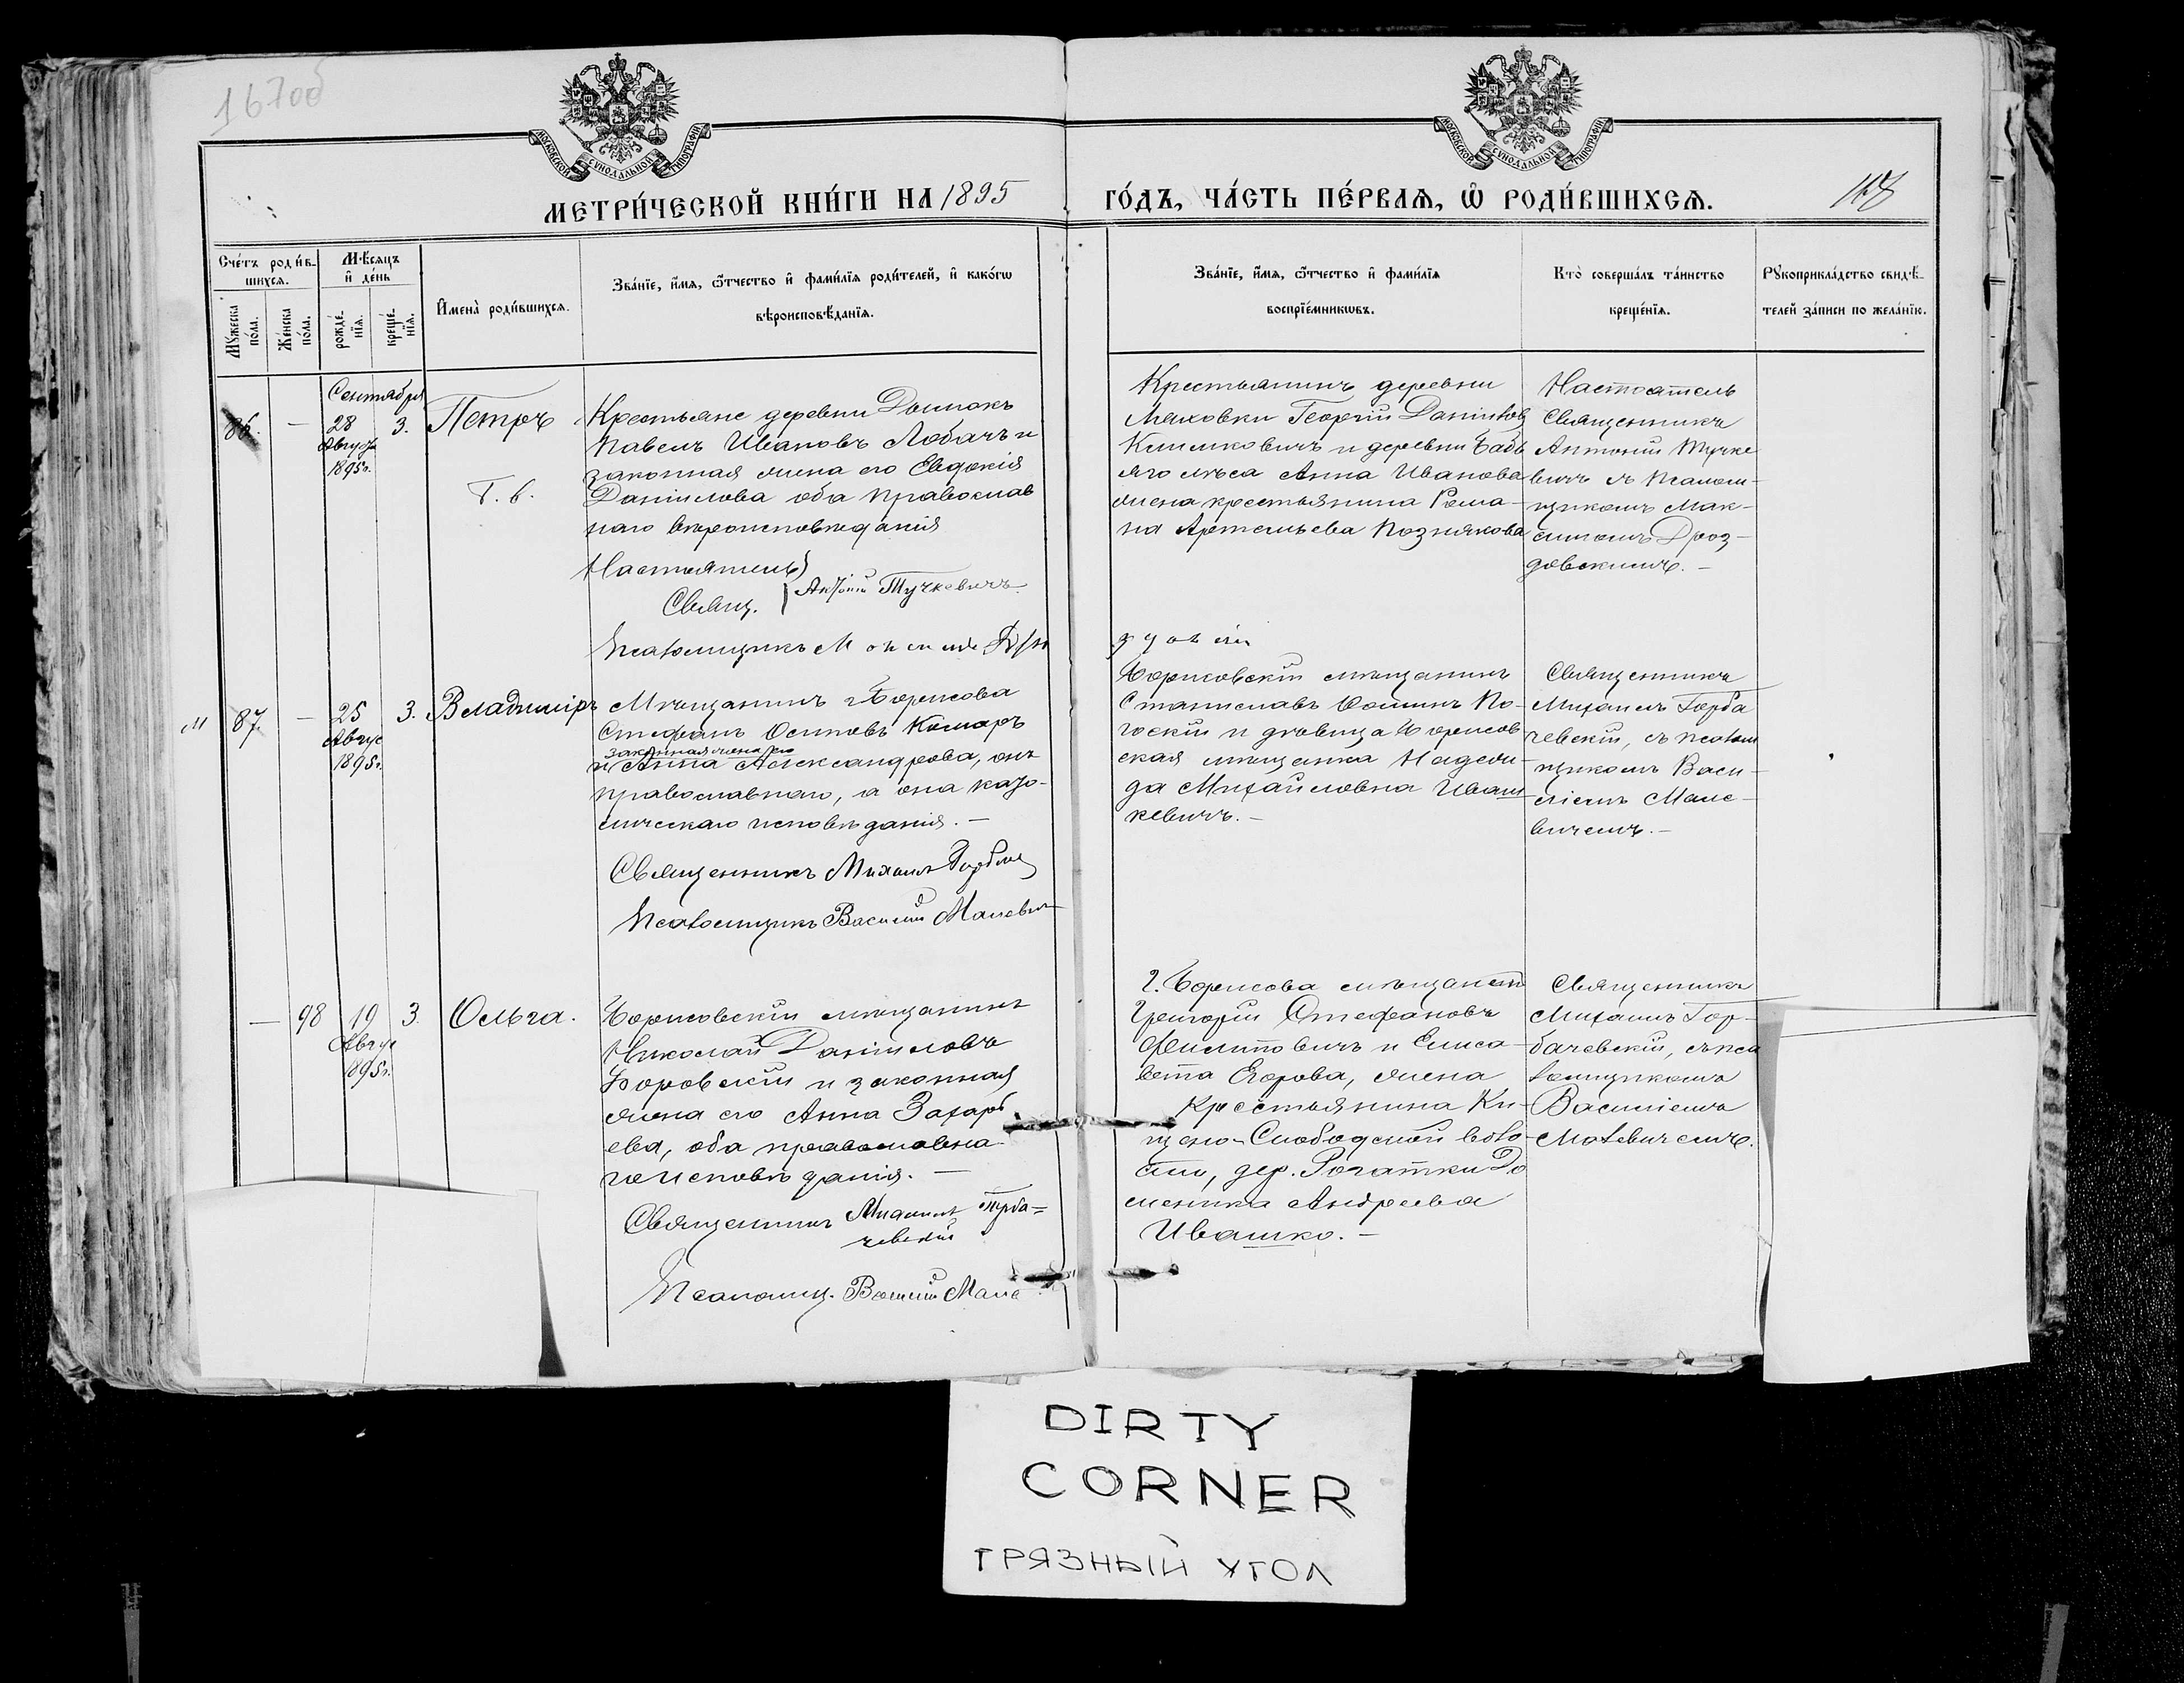 167об
МОСКОВСКОЙ СУНОДАЛЬНОЙ ТИПОГРАФІИ
МОСКОВСКОЙ СУНОДАЛЬНОЙ ТИПОГРАФІИ
МЕТРИ́ЧЕСКОЙ КНИ́ГИ НА 1895
ГО́ДЪ, ЧА́СТЬ ПЕ́РВАѦ, Ѡ҆ РОДИ́ВШИХСѦ.
Сче́тъ роди́в-
шихсѧ.
Мꙋ́жеска
по́ла.
Же́нска
по́ла.
Мѣ́сѧцъ
и҆ де́нь
рожде́-
нїѧ.
креще́-
нїѧ.
И҆мена̀ роди́вшихсѧ.
Зва́нїе, и҆́мѧ, ѻ҆́тчество и҆ фами́лїѧ роди́телей, и҆ како́гѡ
вѣроисповѣ́данїѧ.
Зва́нїе, и҆́мѧ, ѻ҆́тчество и҆ фами́лїѧ
воспрїе́мникѡвъ.
Кто̀ соверша́лъ та́инство
креще́нїѧ.
Рꙋкоприкла́дство свидѣ́-
телей за́писи по жела́нїю.
Сентября
86. — 28 3. Петръ
Август
1895г.
Т. б.
Крестьяне деревни Дымокъ
Павелъ Ивановъ Лобачъ и
законная жена его Евдокія
Даніилова оба православ
наго вѣроисповѣданія
Настоятель
Свящ. Антоній Тучкевичъ
Псаломщикъ
Крестьянинъ деревни
Маховки Георгій Даніиловъ
Климковичъ и деревни Бабь
яго лѣса Анна Иванова
жена крестьянина Рома-
на Артемьева Познякова
Настоятель
Священникъ
Антоній Тучке
вичъ съ Псалом-
щикомъ Мак-
симомъ Дроз-
довскимъ. —
м 87. — 25 3. Владиміръ
Авгус
1895г.
Мѣщанинъ г. Борисова
Стефанъ Осиповъ Комаръ
законная жена его
и Анна Александрова, онъ
православнаго, а она като-
лическаго исповѣданія. —
Священникъ Михаилъ
Псаломщикъ Василій Малевич
Борисовскій мѣщанинъ
Станиславъ Фоминъ По-
госкій и дѣвица Борисов
ская мѣщанка Надеж-
да Михайловна Иваш
кевичъ. —
Священникъ
Михаилъ Горба
чевскій, съ псалом
щикомъ Васи-
ліемъ Мале-
вичемъ. —
— 98 19 3. Ольга.
Авгус
1895г.
Борисовскій мѣщанинъ
Николай Даніиловъ
Боровскій и законная
жена его Анна Захарь
ева, оба православна
го исповѣданія. —
Священникъ Михаилъ Горба=
чевскій
Псаломщ. Василій Мале
г. Борисова мѣщанинъ
Григорій Стефановъ
Филиповичъ и Елиса-
вета Егорова, жена
крестьянина Ки-
щено-Слободской воло
сти, дер. Рогатки До
меника Андреева
Ивашко. —
Священникъ
Михаилъ Гор-
бачевскій, съ пса
ломщикомъ
Василіемъ
Малевичемъ.
DIRTY
CORNER
ГРЯЗНЫЙ УГОЛ